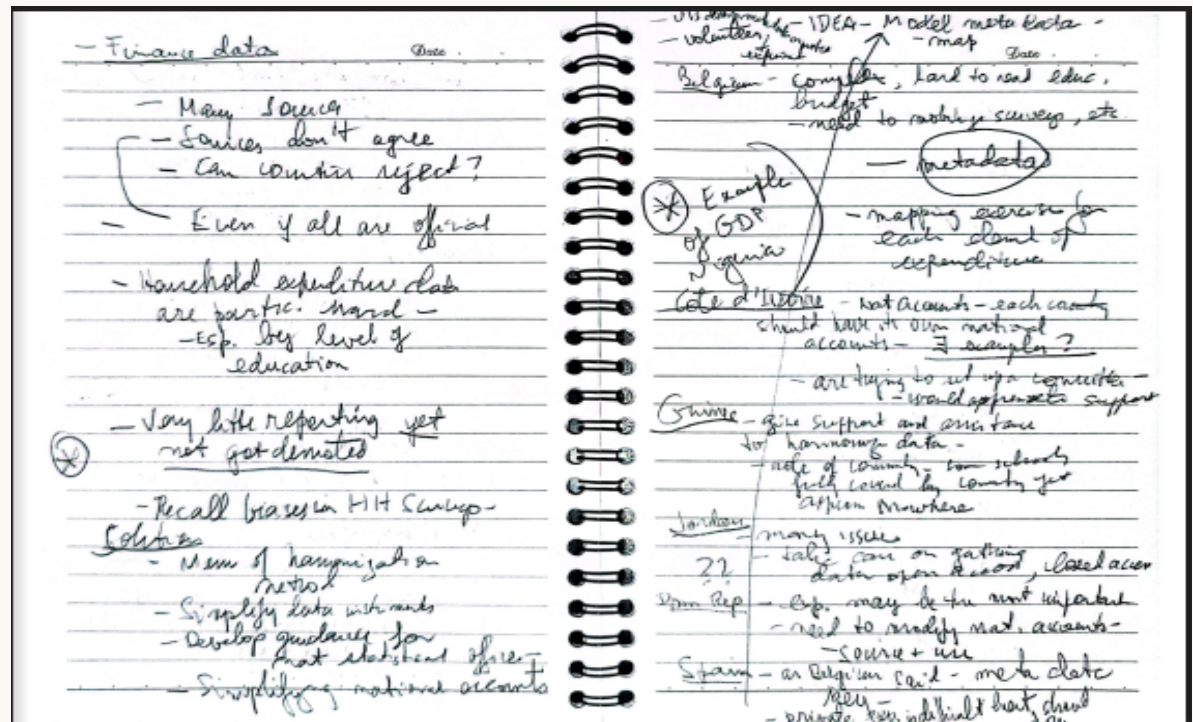 - Finance data
Date
- Many sources
- Sources don't agree
- Can countries reject?
- Even if all are official
- Household expenditure data
are partic. hard -
- Esp. by level of
education
- Very little reporting yet
not got demoted
- Recall biases in HH Surveys -
Solutions
- Menu of harmonization
- Simplify data instruments
- Develop guidance for
nat statistical offices -
- Simplifying national accounts
- IDEA - Model meta data -
- volunteer,
- map
Date
Belgium - complex, hard to read educ.
budget
- need to mobilize surveys, etc
- metadata
Example
of GDP
Nigeria
- mapping exercise for
each element of
expenditure
Cote d'Ivoire - Nat accounts - each country
should have its own national
accounts - ∃ examples?
- are trying to set up a committee -
- would appreciate support
- give support and assistance
to harmonize data -
- role of community - some schools
fully covered by community yet
appear nowhere
Jordan
- many issues
- take care on gathering
data open access, closed access
??
Dom Rep - exp. may be the most important
- need to modify nat. accounts -
- source + use
Spain - as Belgium said - meta data
key -
- private exp. difficult but